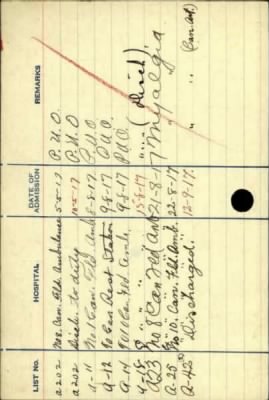 LIST NO. HOSPITAL DATE OF ADMISSION REMARKS
a 202 No 8. Can. Fld. Ambulance 5-5-17 P.U.O
a 202 Disch. to duty 10-5-17 P.U.O
a-11 No 1 Can. Fld Amb 8-8-17 P.U.O
a-12 Can Rest Station 9-8-17 P.U.O.
a-14 10 Can Fld Amb. 9-8-17 P.U.O.
" " 15-8-17 " (Disch)
a 23 No 8 Can Fld Amb 21-8-17 Myalgia
a-25 No 10. Can. Fld. Amb. 22-8-17 "
a-42 Discharged. 12-9-17. "